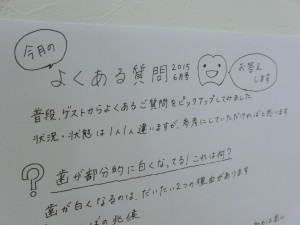 今月の
よくある質問
2015
6月号
お答え
します
普段、ゲストからよくあるご質問をピックアップしてみました
状況・状態は1人1人違いますが、参考にしていただければと思います
?
歯が部分的に白くなってる!これは何?
歯が白くなるのは、だいたい2つの理由があります